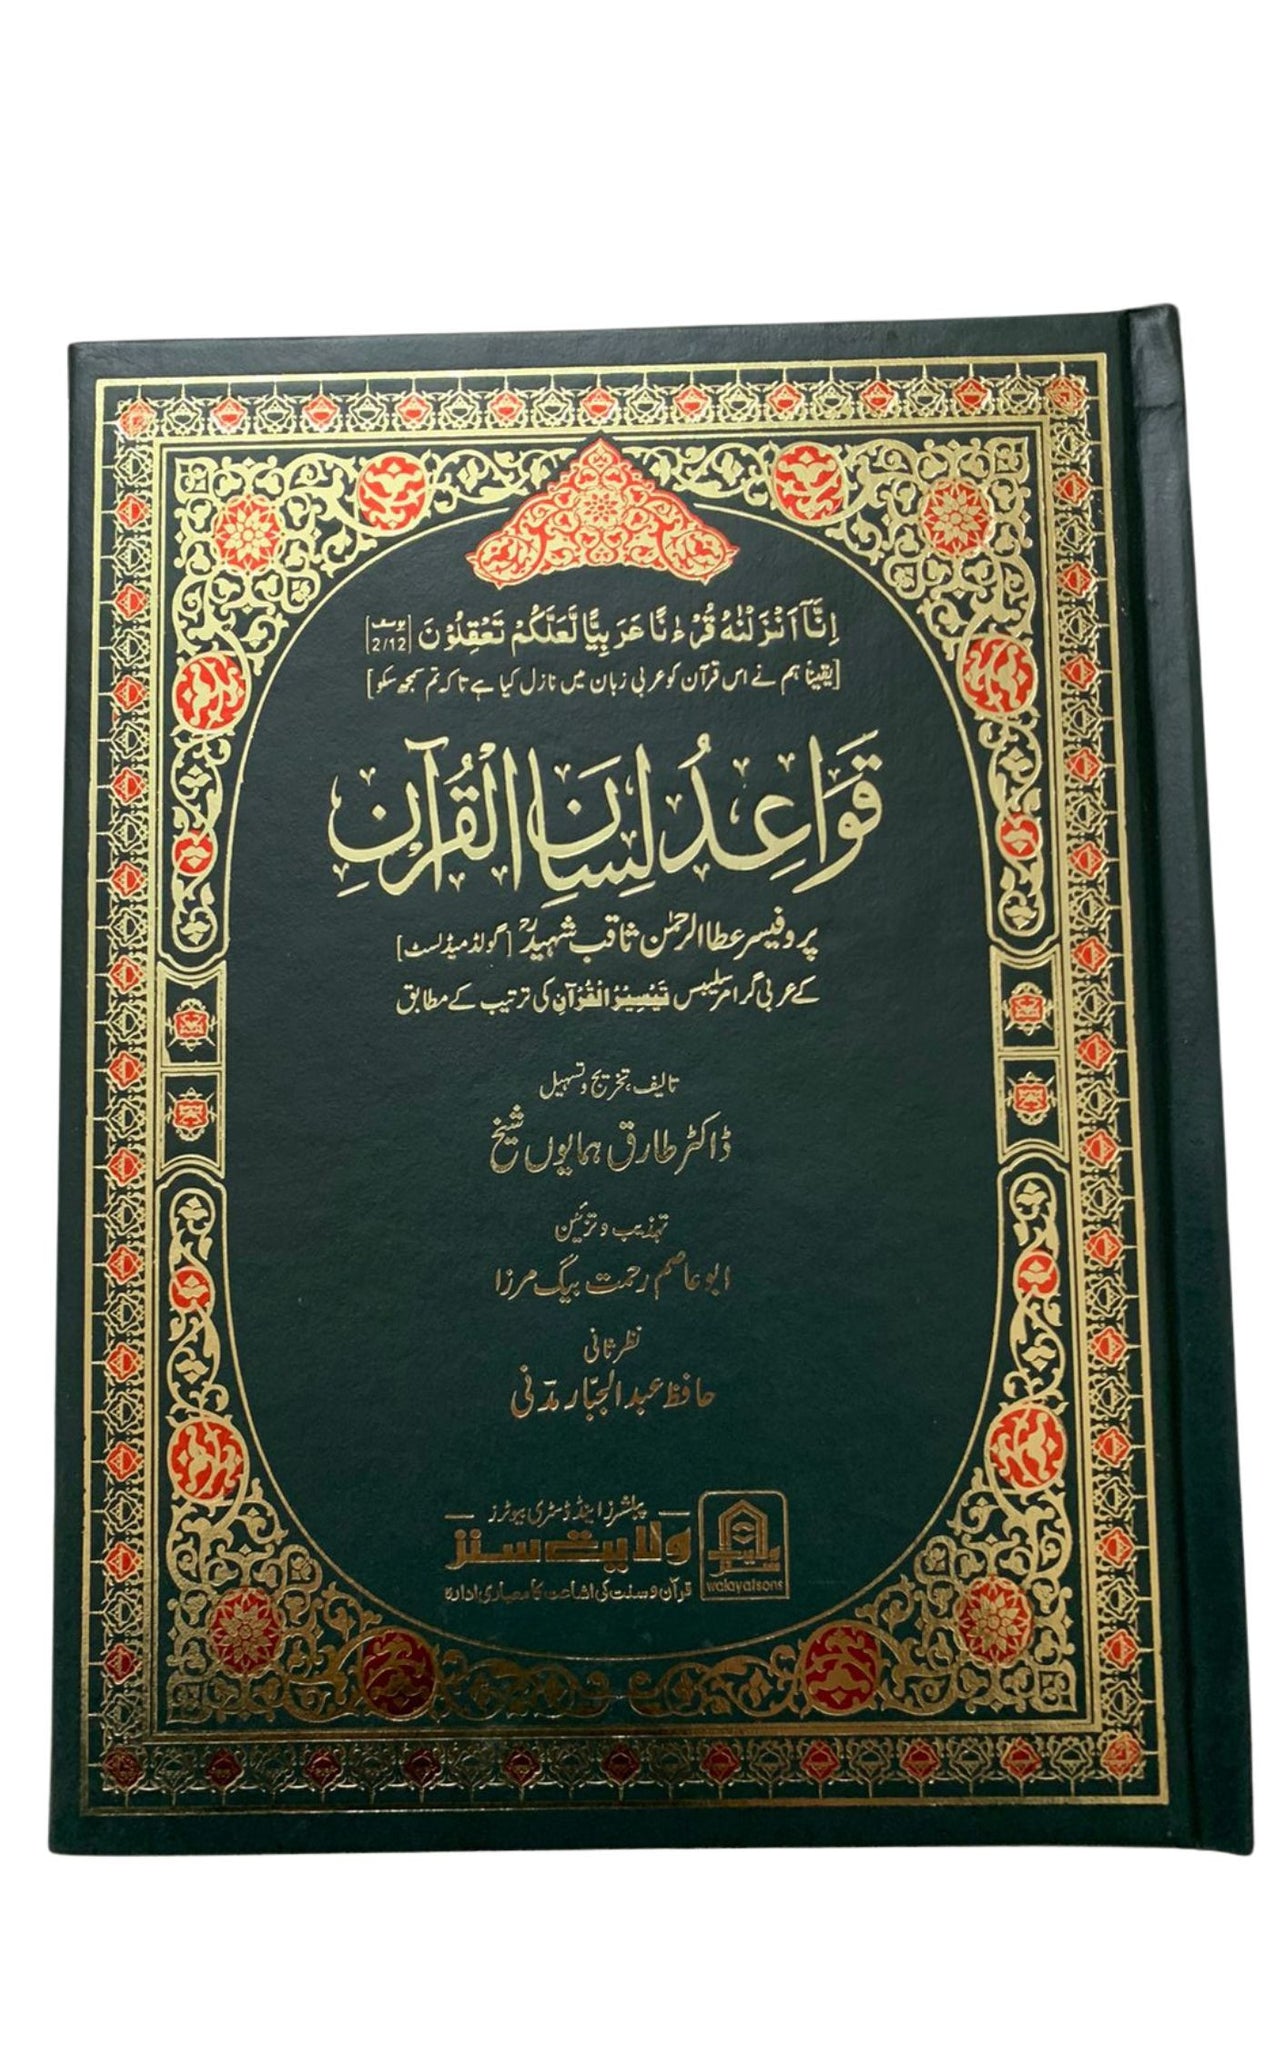 اِنَّاۤ اَنْزَلْنٰهُ قُرْءٰنًا عَرَبِیًّا لَّعَلَّكُمْ تَعْقِلُوْنَ [یوسف 2/12]
[یقیناً ہم نے اس قرآن کو عربی زبان میں نازل کیا ہے تاکہ تم سمجھ سکو]
قَوَاعِدُ لِسَانِ الْقُرْآنِ
پروفیسر عطا الرحمٰن ثاقب شہیدؒ [گولڈ میڈلسٹ]
کے عربی گرامر سلیبس تَیْسِیْرُ الْقُرْآنِ کی ترتیب کے مطابق
تالیف، تخریج و تسہیل
ڈاکٹر طارق ہمایوں شیخ
تہذیب و تزئین
ابو عاصم رحمت بیگ مرزا
نظر ثانی
حافظ عبد الجبّار مدنی
پبلشرز اینڈ ڈسٹری بیوٹرز
ولایت سنز
قرآن و سنت کی اشاعت کا معیاری ادارہ
walayatsons